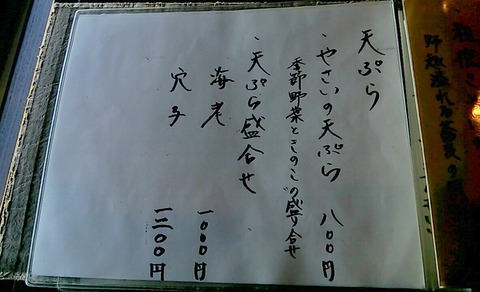 天ぷら
・やさいの天ぷら 八〇〇円
季節野菜ときのこの盛り合せ
・天ぷら盛合せ
海老 一〇〇〇円
穴子 一三〇〇円